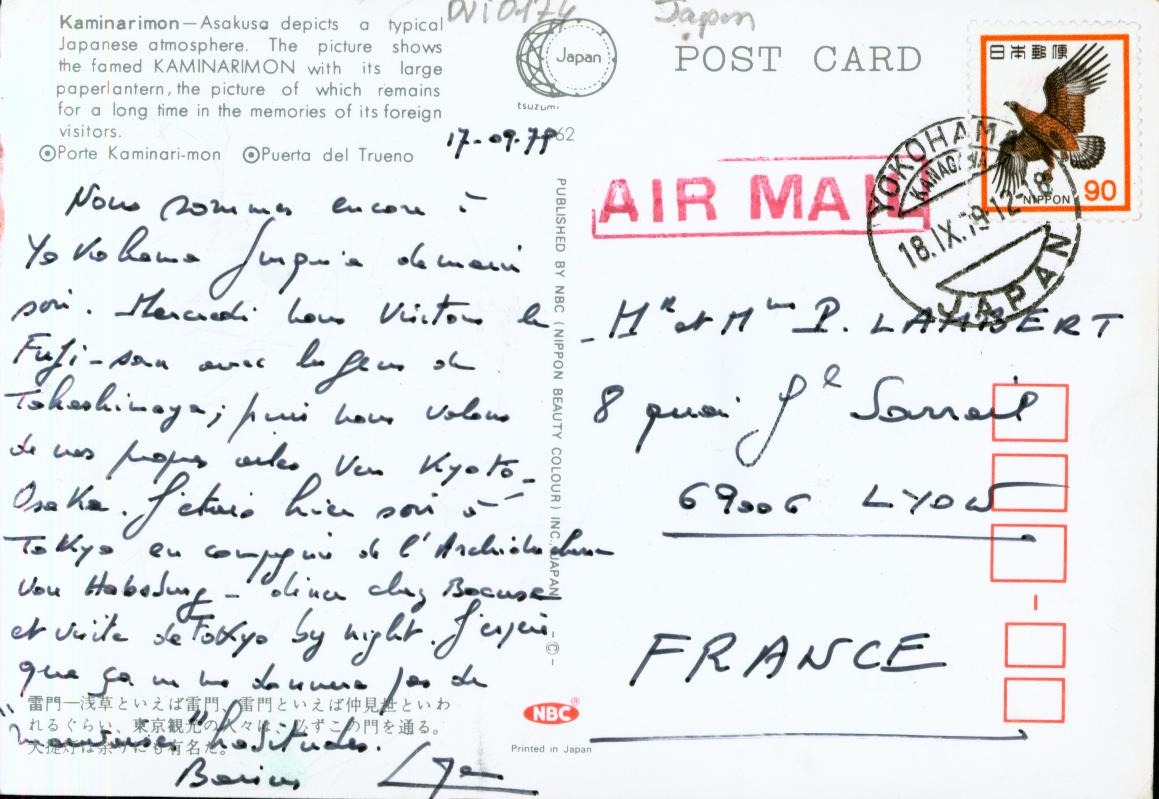 DVi0174
Japon
Kaminarimon—Asakusa depicts a typical
Japanese atmosphere. The picture shows
the famed KAMINARIMON with its large
paperlantern, the picture of which remains
for a long time in the memories of its foreign
visitors.
Porte Kaminari-mon Puerta del Trueno
Japan
tsuzumi
62
POST CARD
日本郵便
NIPPON 90
YOKOHAMA
KANAGAWA
18.IX.79.12-18
JAPAN
AIR MAIL
17-09-79
Nous sommes encore à
Yokohama jusqu'à demain
soir. Mercredi nous visitons le
Fuji-san avec les gens de
Takashimaya; puis nous volons
de nos propres ailes vers Kyoto-
Osaka. J'étais hier soir à
Tokyo en compagnie de l'Archiduchesse
von Habsburg - diner chez Bocuse
et visite de Tokyo by night. J'espère
que ça ne me donnera pas de
"mauvaises" habitudes.
Baisers
PUBLISHED BY NBC (NIPPON BEAUTY COLOUR) INC., JAPAN -©-
Mr et Mme P. LAMBERT
8 quai Gl Sarrail
69006 LYON
FRANCE
雷門—浅草といえば雷門、雷門といえば仲見世といわ
れるぐらい、東京観光の人々は、必ずこの門を通る。
大提灯は余りにも有名だ。
NBC®
Printed in Japan